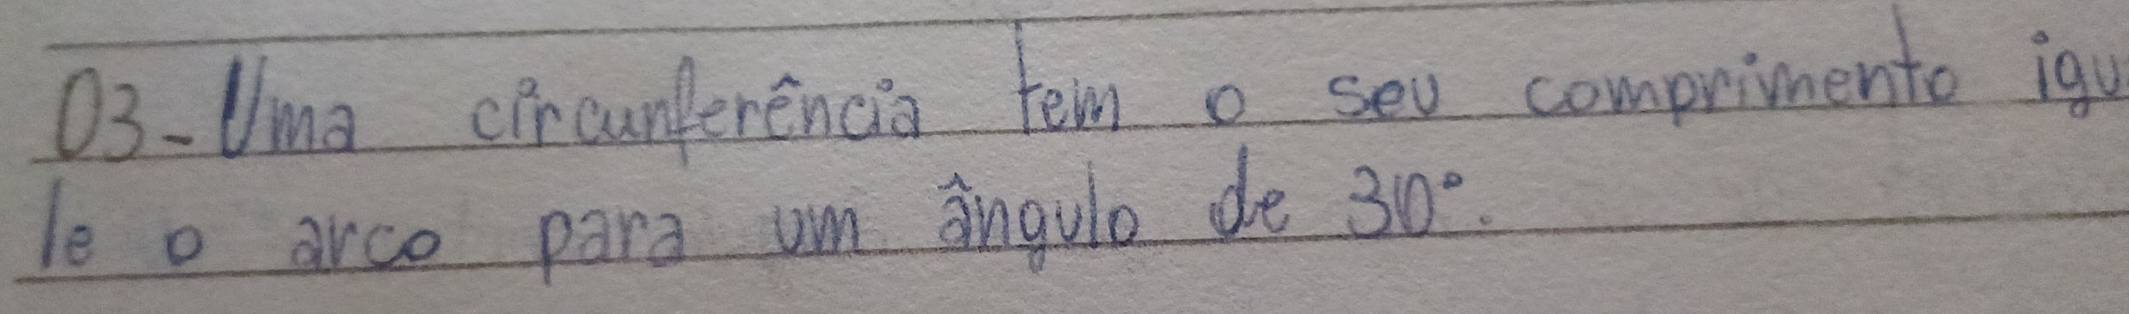 03- Uma circunferência tem o seu comprimento igu
le o arco para um ângulo de 30°.